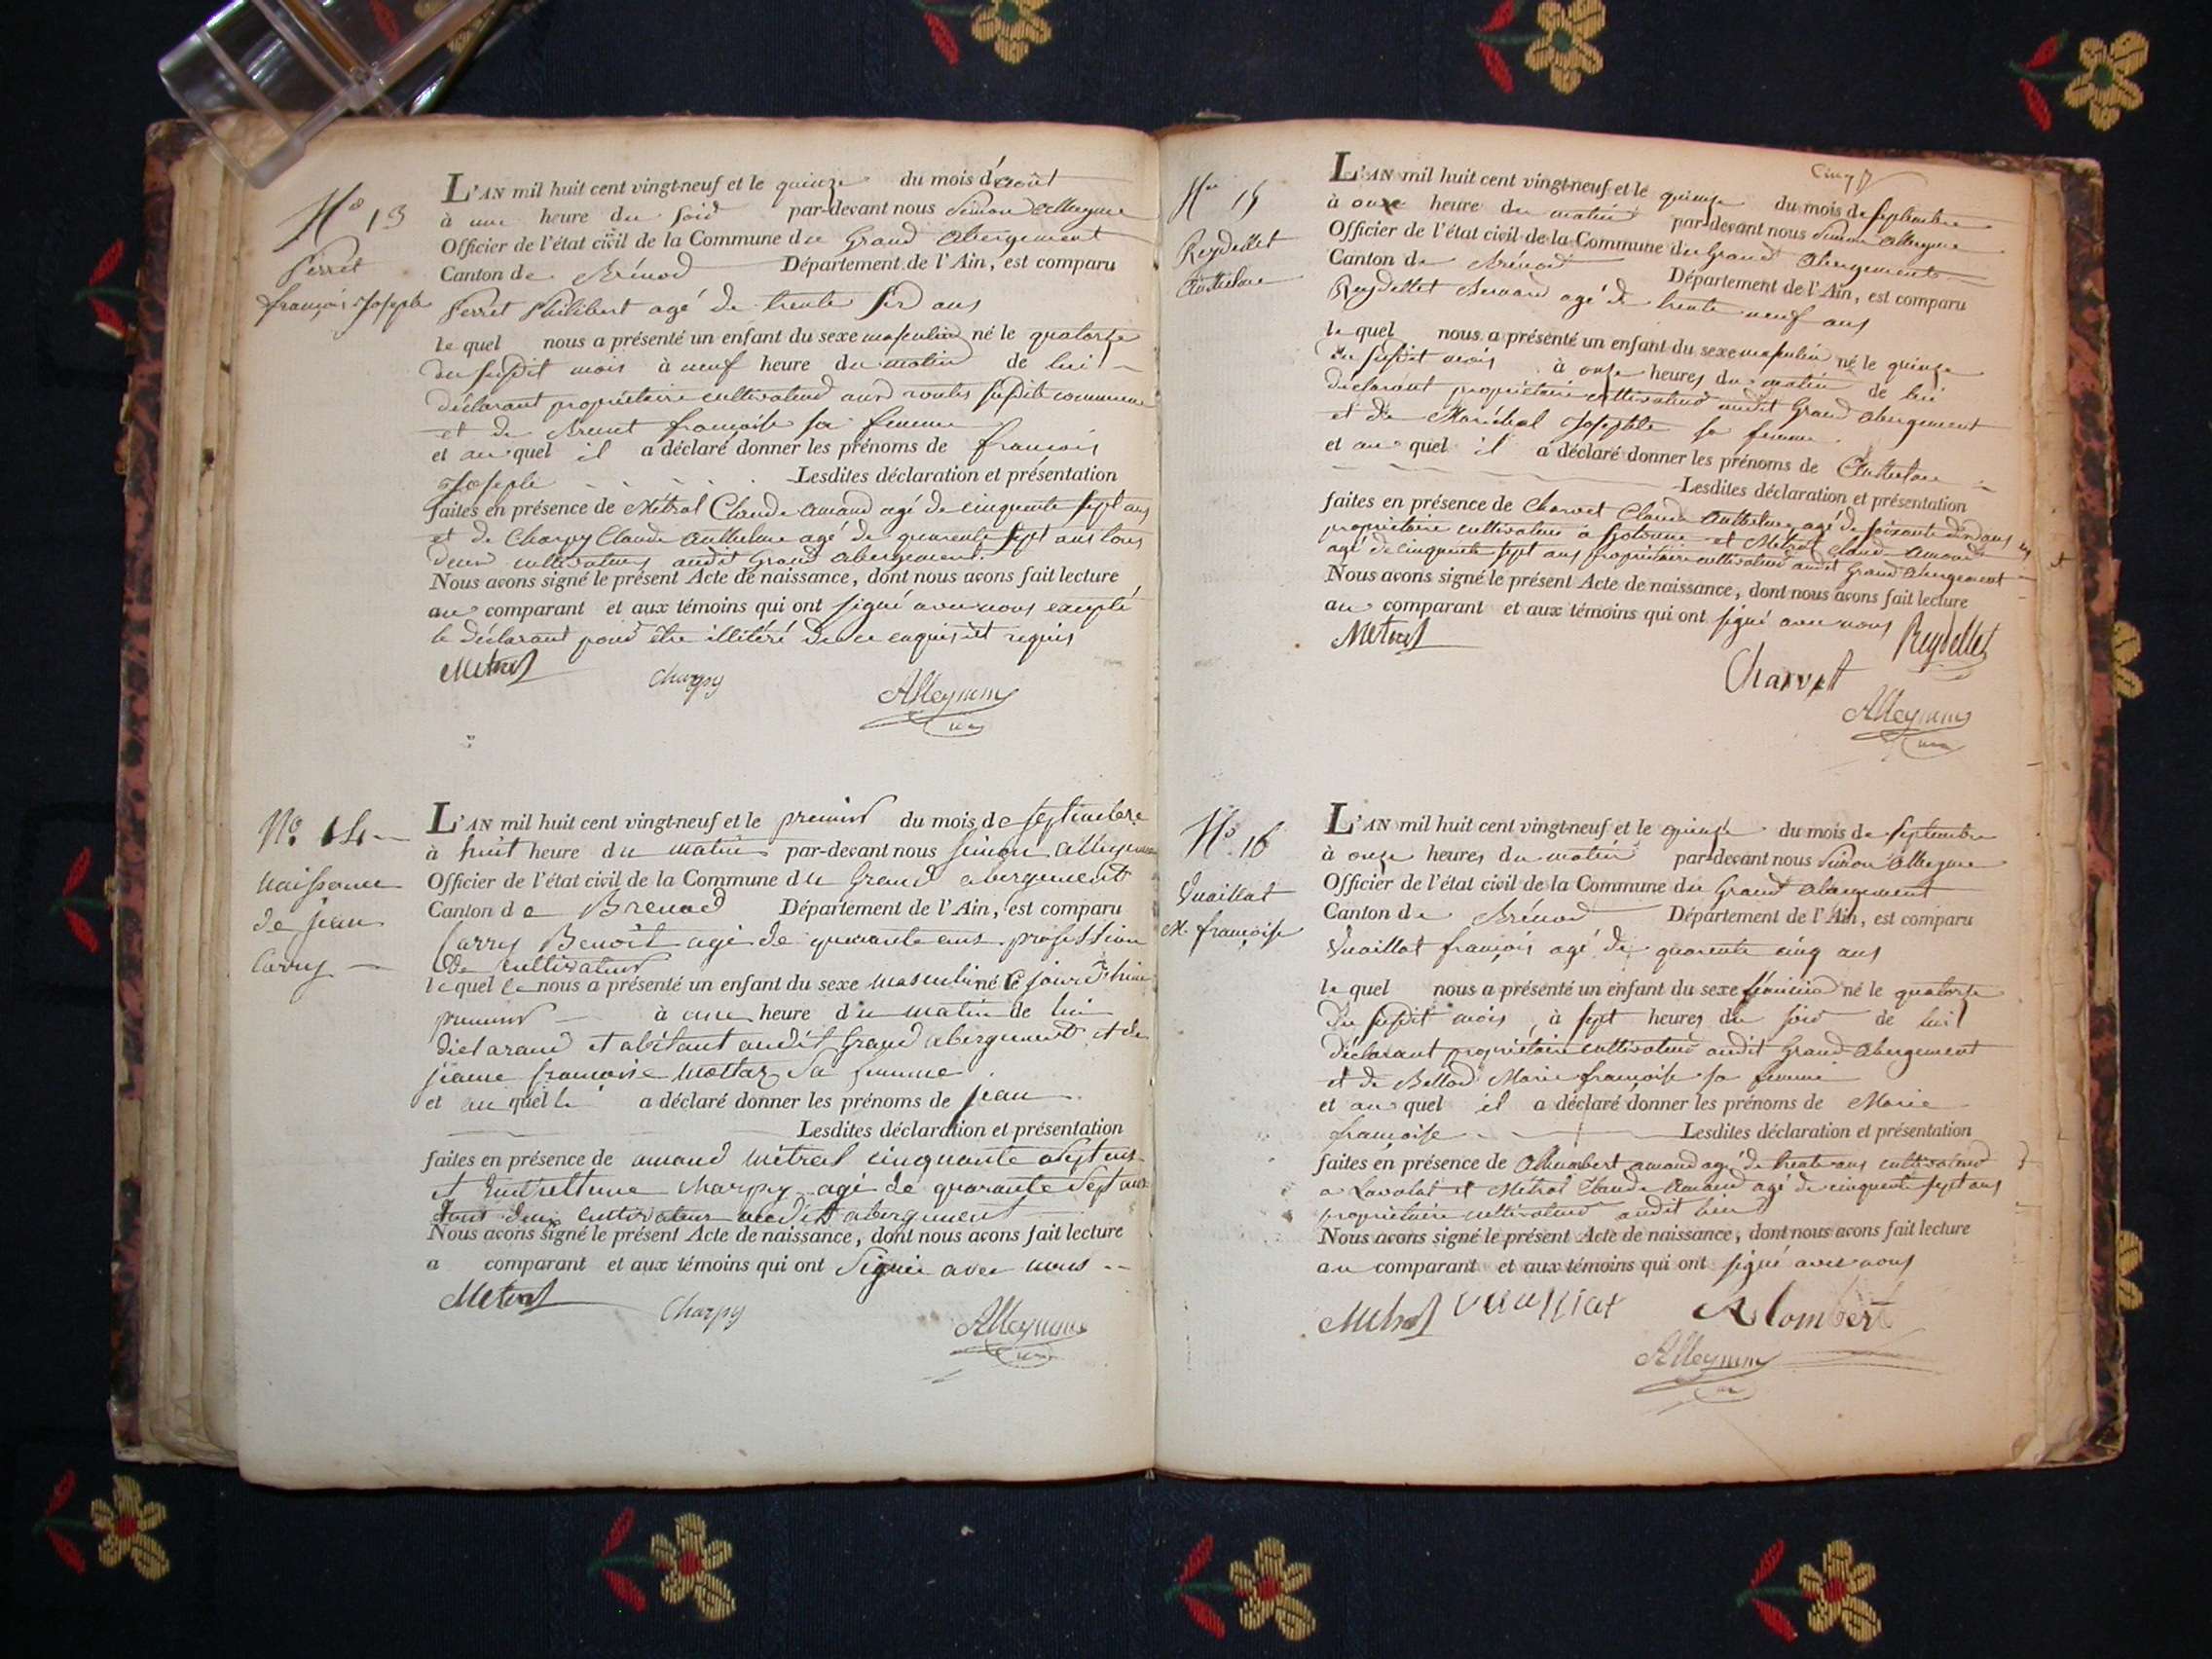 N° 13
Perret
françois Joseph
L'AN mil huit cent vingt-neuf et le quinze du mois d'août
à une heure du soir par-devant nous Simon Alleyme
Officier de l'état civil de la Commune du Grand Abergement
Canton de Brénod Département de l'Ain, est comparu
Perret Philibert agé de trente six ans
le quel nous a présenté un enfant du sexe masculin né le quatorze
du susdit mois à neuf heure du matin de lui
déclarant propriétaire cultivateur aux routes susdite commune
et de Brunet françoise sa femme
et au quel il a déclaré donner les prénoms de françois
Joseph Lesdites déclaration et présentation
faites en présence de Métral Claude Amand agé de cinquante sept ans
et de Charpy Claude Anthelme agé de quarante sept ans tous
deux cultivateurs audit Grand Abergement.
Nous avons signé le présent Acte de naissance, dont nous avons fait lecture
au comparant et aux témoins qui ont signé avec nous excepté
le déclarant pour être illitéré de ce enquis et requis
Metral Charpy Alleyme
N° 14
Naissance
de jean
Carry
L'AN mil huit cent vingt-neuf et le premier du mois de septembre
à huit heure du matin par-devant nous simon alleyme
Officier de l'état civil de la Commune du Grand abergement
Canton de Brenod Département de l'Ain, est comparu
Carry Benoît agé de quarante ans profession
de cultivateur
lequel le nous a présenté un enfant du sexe masculin né le jourd'hui
premier à une heure du matin de lui
diclarand et abitant audit Grand abergement et de
jeanne françoise Mottaz sa femme
et au quel le a déclaré donner les prénoms de jean
Lesdites déclaration et présentation
faites en présence de amand métral cinquante sept ans
et charpy agé de quarante sept ans
tous deux cultivateur audit abergement
Nous avons signé le présent Acte de naissance, dont nous avons fait lecture
a comparant et aux témoins qui ont signer avec nous
Metral Charpy Alleyme
Cinq
N° 15
Reydellet
Anthelme
L'AN mil huit cent vingt-neuf et le quinze du mois de septembre
à onze heure du matin par-devant nous Simon Alleyme
Officier de l'état civil de la Commune du Grand Abergement
Canton de Brénod Département de l'Ain, est comparu
Reydellet Bernard agé de trente neuf ans
le quel nous a présenté un enfant du sexe masculin né le quinze
du susdit mois à onze heures du matin de lui
déclarant propriétaire cultivateur audit Grand Abergement
et de Maréchal Josephte sa femme
et au quel il a déclaré donner les prénoms de Anthelme
Lesdites déclaration et présentation
faites en présence de Charvet Claude Anthelme agé de soixante ans
propriétaire cultivateur à et Métral Claude Amand
agé de cinquante sept ans propriétaire cultivateur audit Grand Abergement
Nous avons signé le présent Acte de naissance, dont nous avons fait lecture
au comparant et aux témoins qui ont signé avec nous
Metral Charvet Reydellet
Alleyme
N° 16
Vuaillat
M. françoise
L'AN mil huit cent vingt-neuf et le quinze du mois de Septembre
à onze heures du matin par-devant nous Simon Alleyme
Officier de l'état civil de la Commune du Grand Abergement
Canton de Brénod Département de l'Ain, est comparu
Vuaillat françois agé de quarante cinq ans
le quel nous a présenté un enfant du sexe féminin né le quatorze
du susdit mois à sept heures du soir de lui
déclarant propriétaire cultivateur audit Grand Abergement
et de Billod Marie françoise sa femme
et au quel il a déclaré donner les prénoms de Marie
françoise Lesdites déclaration et présentation
faites en présence de amand agé de trente ans cultivateur
a Lavalat et Métral Claude Amand agé de cinquante sept ans
propriétaire cultivateur audit lieu
Nous avons signé le présent Acte de naissance, dont nous avons fait lecture
au comparant et aux témoins qui ont signé avec nous
Metral Vuailliat Alombert
Alleyme